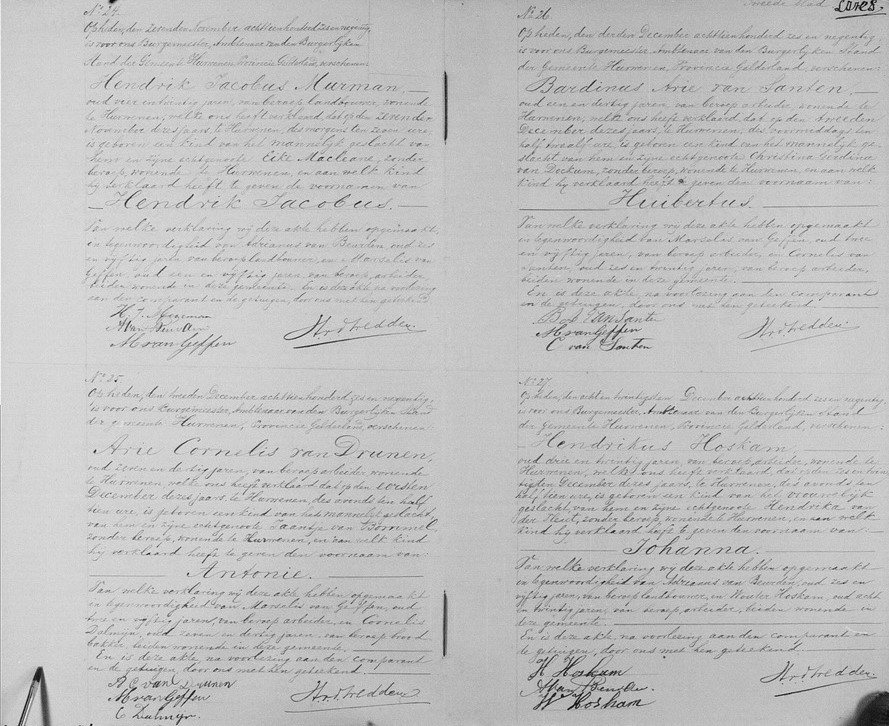 No. 24.
Op heden, den zevenden November achttienhonderd zes en negentig,
is voor ons Burgemeester, Ambtenaar van den Burgerlijken
Stand der Gemeente Hurwenen Provincie Gelderland, verschenen:
Hendrik Jacobus Murman,
oud vier en dertig jaren, van beroep landbouwer, wonende
te Hurwenen, welke ons heeft verklaard, dat op den zevenden
November dezes jaars, te Hurwenen, des morgens ten zeven ure
is geboren een kind van het mannelijk geslacht van
hem en zijne echtgenoote Eike Macleane, zonder
beroep, wonende te Hurwenen, en aan welk kind
hij verklaard heeft te geven de voornamen van
Hendrik Jacobus.
Van welke verklaring wij deze akte hebben opgemaakt
in tegenwoordigheid van Adrianus van Beurden oud zes
en vijftig jaren, van beroep landbouwer, en Marselis van
Geffen, oud een en vijftig jaren van beroep, arbeider,
beiden wonende in deze gemeente. En is deze akte na voorlezing
aan den comparant en de getuigen, door ons met hen geteekend.
H. J. Murman
M van Geffen
No. 25.
Op heden, den tweeden December achttienhonderd zes en negentig,
is voor ons Burgemeester, Ambtenaar van den Burgerlijken Stand
der gemeente Hurwenen, Provincie Gelderland, verschenen:
Arie Cornelis van Drunen,
oud zeven en dertig jaren, van beroep arbeider, wonende
te Hurwenen, welke ons heeft verklaard dat op den eersten
December dezes jaars, te Hurwenen, des avonds ten half
tien ure, is geboren een kind van het mannelijk geslacht,
van hem en zijne echtgenoote Jaantje van Bommel,
zonder beroep, wonende te Hurwenen, en aan welk kind
hij verklaard heeft te geven den voornaam van:
Antonie.
Van welke verklaring wij deze akte hebben opgemaakt
in tegenwoordigheid van Marselis van Geffen, oud
twee en vijftig jaren, van beroep arbeider, en Cornelis
Dalmijn, oud zeven en dertig jaren, van beroep brood-
bakker, beiden wonende in deze gemeente.
En is deze akte na voorlezing aan den comparant
en de getuigen door ons met hen geteekend.
A C van Drunen
M van Geffen
C Dalmijn.
No. 26.
Tweede blad
Op heden, den derden December achttienhonderd zes en negentig,
is voor ons Burgemeester, Ambtenaar van den Burgerlijken Stand
der Gemeente Hurwenen, Provincie Gelderland, verschenen:
Bardinus Arie van Santen,
oud een en dertig jaren, van beroep arbeider, wonende te
Hurwenen, welke ons heeft verklaard, dat op den tweeden
December dezes jaars, te Hurwenen, des voormiddags ten
half twaalf ure, is geboren een kind van het mannelijk ge-
slacht van hem en zijne echtgenoote Christina Gerdina
van Dockum, zonder beroep, wonende te Hurwenen, en aan welk
kind hij verklaard heeft te geven den voornaam van:
Huibertus.
Van welke verklaring wij deze akte hebben opgemaakt
in tegenwoordigheid van Marselis van Geffen, oud twee
en vijftig jaren, van beroep arbeider, en Cornelis van
Santen, oud zes en twintig jaren, van beroep arbeider,
beiden wonende in deze gemeente.
En is deze akte, na voorlezing aan den comparant
en de getuigen, door ons met hen geteekend.
B A van Sante
M van Geffen
C van Santen
No. 27.
Op heden, den acht en twintigsten December achttienhonderd zes en negentig,
is voor ons Burgemeester, Ambtenaar van den Burgerlijken Stand
der Gemeente Hurwenen, Provincie Gelderland, verschenen:
Hendrikus Hoskam
oud drie en twintig jaren, van beroep arbeider, wonende te
Hurwenen, welke ons heeft verklaard, dat op den zes en twin-
tigsten December dezes jaars, te Hurwenen, des avonds ten
half tien ure, is geboren een kind van het vrouwelijk
geslacht, van hem en zijne echtgenoote Hendrika van
der Heut, zonder beroep, wonende te Hurwenen, en aan welk
kind hij verklaard heeft te geven den voornaam van:
Johanna.
Van welke verklaring wij deze akte hebben opgemaakt
in tegenwoordigheid van Adrianus van Beurden, oud zes en
vijftig jaren, van beroep landbouwer, en Wouter Hoskam, oud acht
en twintig jaren, van beroep, arbeider, beiden wonende in
deze gemeente.
En is deze akte na voorlezing aan den comparant en
de getuigen, door ons met hen geteekend.
H Hoskam
A van Beurden.
W Hoskam